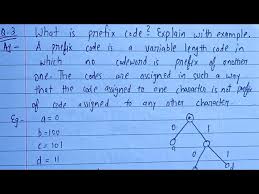 Q-3 What is prefix code? Explain with example.
A:- A prefix code is a variable length code in
which no codeword is prefix of another
one. The codes are assigned in such a way
that the code assigned to one character is not prefix
of code assigned to any other character
Eg:- a = 0
b = 100
c = 101
d = 11
0 1
a
0 1
d